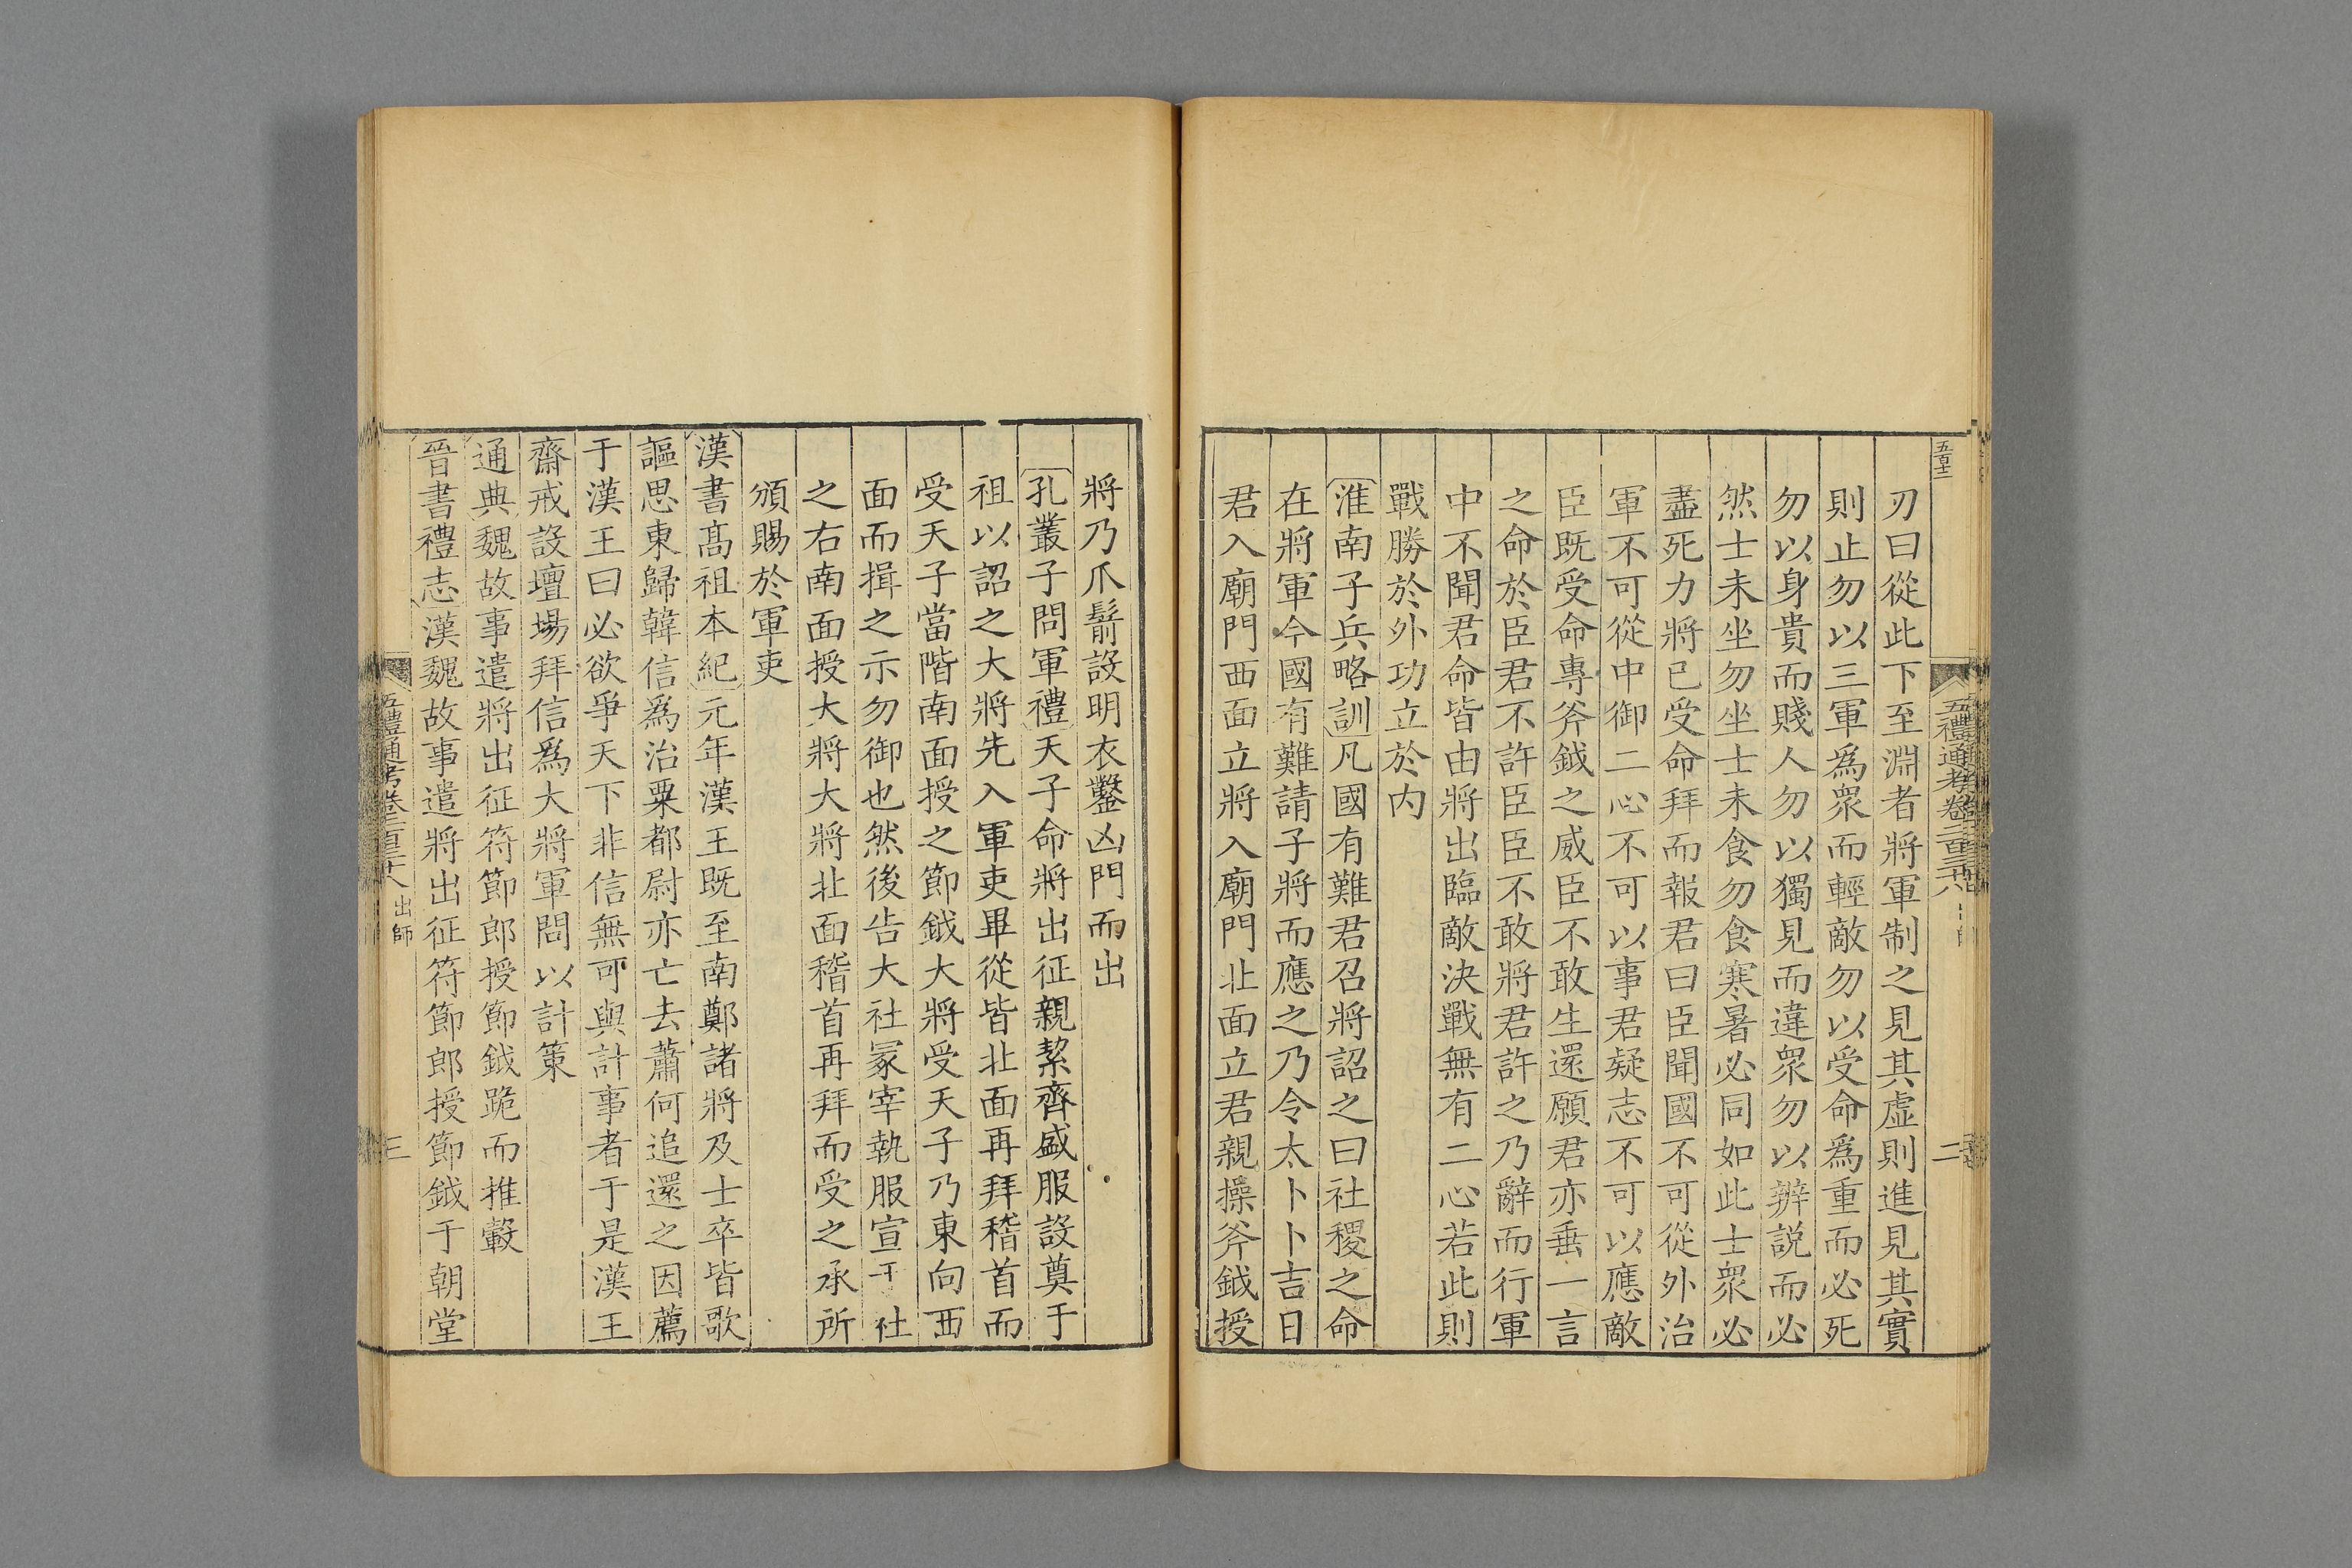 五百十二
五禮通考卷二百三十八
二
刃曰從此下至淵者將軍制之見其虛則進見其實
則止勿以三軍爲衆而輕敵勿以受命爲重而必死
勿以身貴而賤人勿以獨見而違衆勿以辨説而必
然士未坐勿坐士未食勿食寒暑必同如此士衆必
盡死力將已受命拜而報君曰臣聞國不可從外治
軍不可從中御二心不可以事君疑志不可以應敵
臣既受命專斧鉞之威臣不敢生還願君亦垂一言
之命於臣君不許臣臣不敢將君許之乃辭而行軍
中不聞君命皆由將出臨敵決戰無有二心若此則
戰勝於外功立於内
淮南子兵略訓凡國有難君召將詔之曰社稷之命
在將軍今國有難請子將而應之乃令太卜卜吉日
君入廟門西面立將入廟門北面立君親操斧鉞授
將乃爪鬋設明衣鑿凶門而出
孔叢子問軍禮天子命將出征親絜齊盛服設奠于
祖以詔之大將先入軍吏畢從皆北面再拜稽首而
受天子當階南面授之節鉞大將受天子乃東向西
面而揖之示勿御也然後告大社冢宰執服宣于社
之右南面授大將大將北面稽首再拜而受之承所
頒賜於軍吏
漢書髙祖本紀元年漢王既至南鄭諸將及士卒皆歌
謳思東歸韓信爲治粟都尉亦亡去蕭何追還之因薦
于漢王曰必欲爭天下非信無可與計事者于是漢王
齋戒設壇場拜信爲大將軍問以計策
通典魏故事遣將出征符節郎授節鉞跪而推轂
晉書禮志漢魏故事遣將出征符節郎授節鉞于朝堂
五禮通考卷二百三十八 出師
三